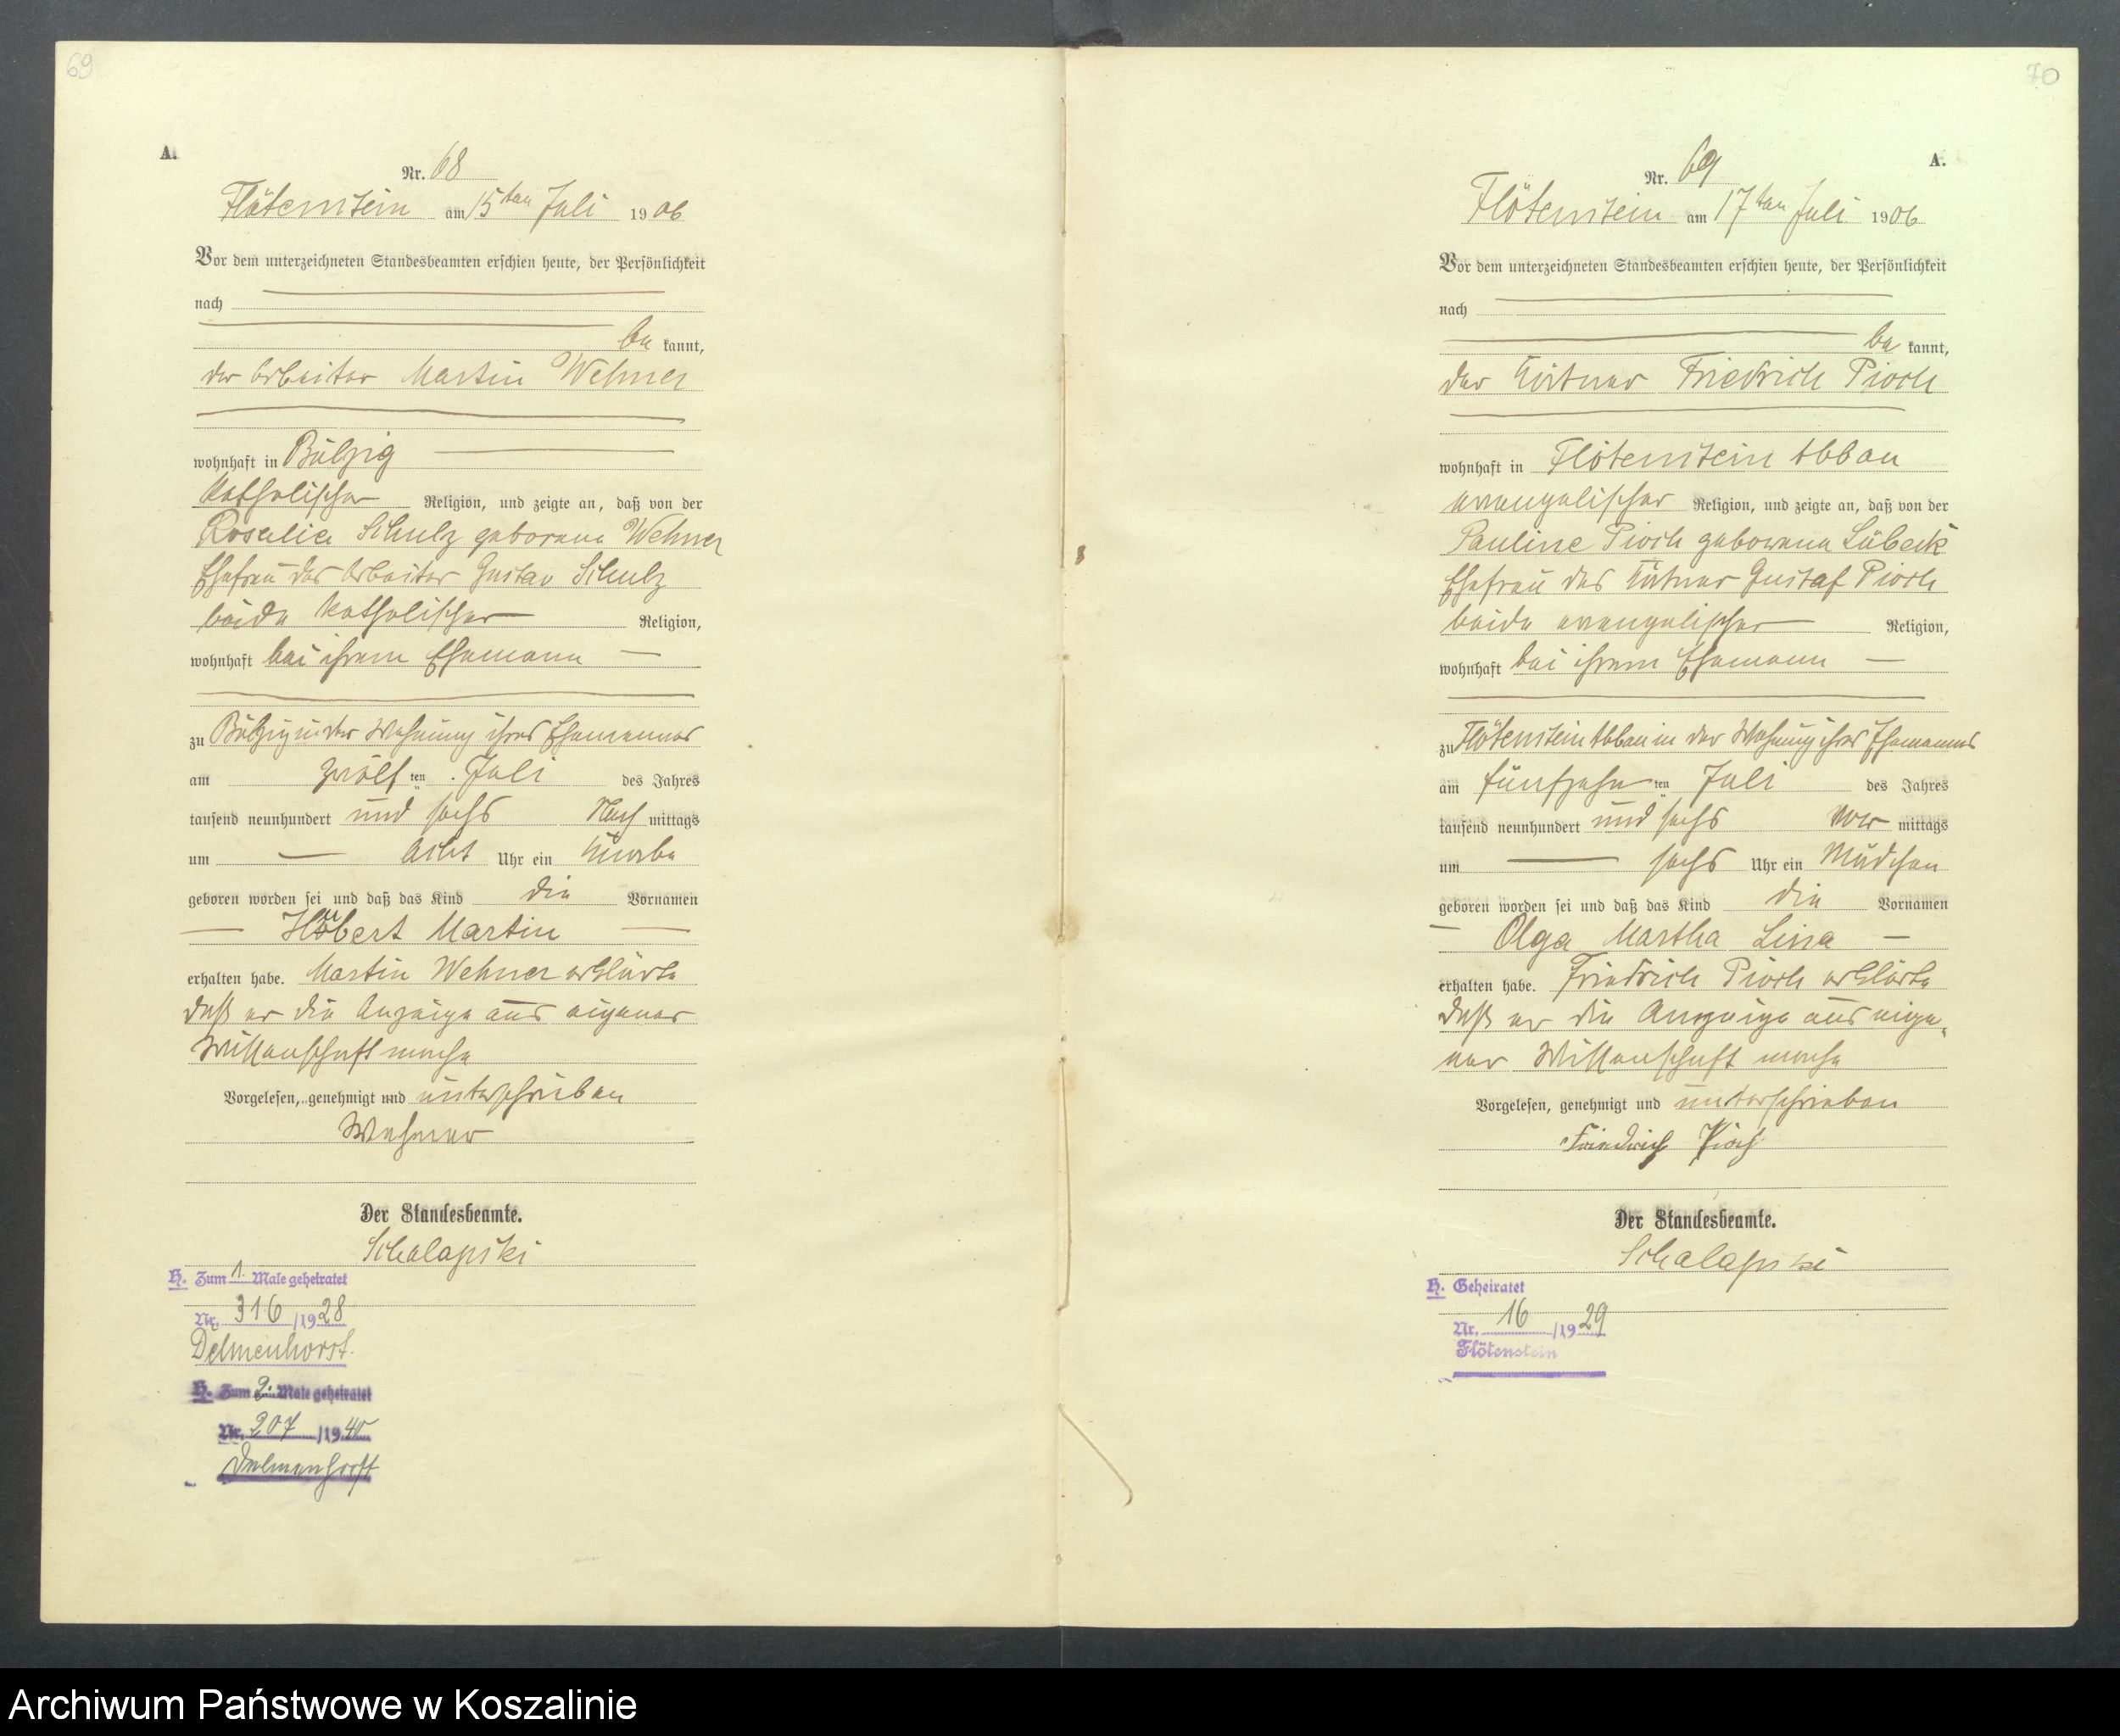 69
A.
Nr. 68
Flötenstein am 15ten Juli 1906
Vor dem unterzeichneten Standesbeamten erschien heute, der Persönlichkeit
nach
be kannt,
der Arbeiter Martin Wehner
wohnhaft in Bölzig
katholischer Religion, und zeigte an, daß von der
Rosalie Schulz geborene Wehner
Ehefrau des Arbeiter Gustav Schulz
beide katholischer Religion,
wohnhaft bei ihrem Ehemann
zu Bölzig in der Wohnung ihres Ehemannes
am zwölf ten Juli des Jahres
tausend neunhundert und sechs Nach mittags
um acht Uhr ein Knabe
geboren worden sei und daß das Kind die Vornamen
Hubert Martin
erhalten habe. Martin Wehner erklärte
daß er die Anzeige aus eigener
Wissenschaft mache
Vorgelesen, genehmigt und unterschrieben
Wehner
Der Standesbeamte.
Schalapski
H. Zum 1. Male geheiratet
Nr. 316 /1928
Delmenhorst.
H. Zum 2. Male geheiratet
Nr. 207 /1940
Delmenhorst
70
A.
Nr. 69
Flötenstein am 17ten Juli 1906
Vor dem unterzeichneten Standesbeamten erschien heute, der Persönlichkeit
nach
be kannt,
der Kätner Friedrich Pioch
wohnhaft in Flötenstein Abbau
evangelischer Religion, und zeigte an, daß von der
Pauline Pioch geborene Lübeck
Ehefrau des Kätner Gustaf Pioch
beide evangelischer Religion,
wohnhaft bei ihrem Ehemann
zu Flötenstein Abbau in der Wohnung ihres Ehemannes
am fünfzehn ten Juli des Jahres
tausend neunhundert und sechs Vor mittags
um sechs Uhr ein Mädchen
geboren worden sei und daß das Kind die Vornamen
Olga Martha Lina
erhalten habe. Friedrich Pioch erklärte
daß er die Anzeige aus eige-
ner Wissenschaft mache
Vorgelesen, genehmigt und unterschrieben
Friedrich Pioch
Der Standesbeamte.
Schalapski
H. Geheiratet
Nr. 16 /1929
Flötenstein
Archiwum Państwowe w Koszalinie